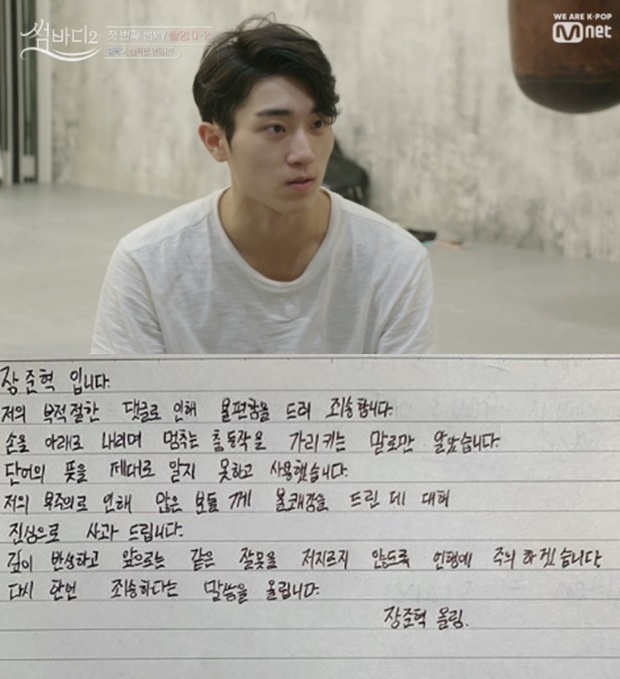 썸바디2
첫 번째 썸MV 촬영 D-2
WE ARE K-POP
Mnet
장준혁 입니다.
저의 부적절한 댓글로 인해 불편함을 드려 죄송합니다.
손을 아래로 내리며 멈추는 춤 동작을 가리키는 말로만 알았습니다.
단어의 뜻을 제대로 알지 못하고 사용했습니다.
저의 부주의로 인해 많은 분들 께 불쾌감을 드린 데 대해
진심으로 사과 드립니다.
깊이 반성하고 앞으로는 같은 잘못을 저지르지 않도록 언행에 주의 하겠습니다.
다시 한번 죄송하다는 말씀을 올립니다.
장준혁 올림.